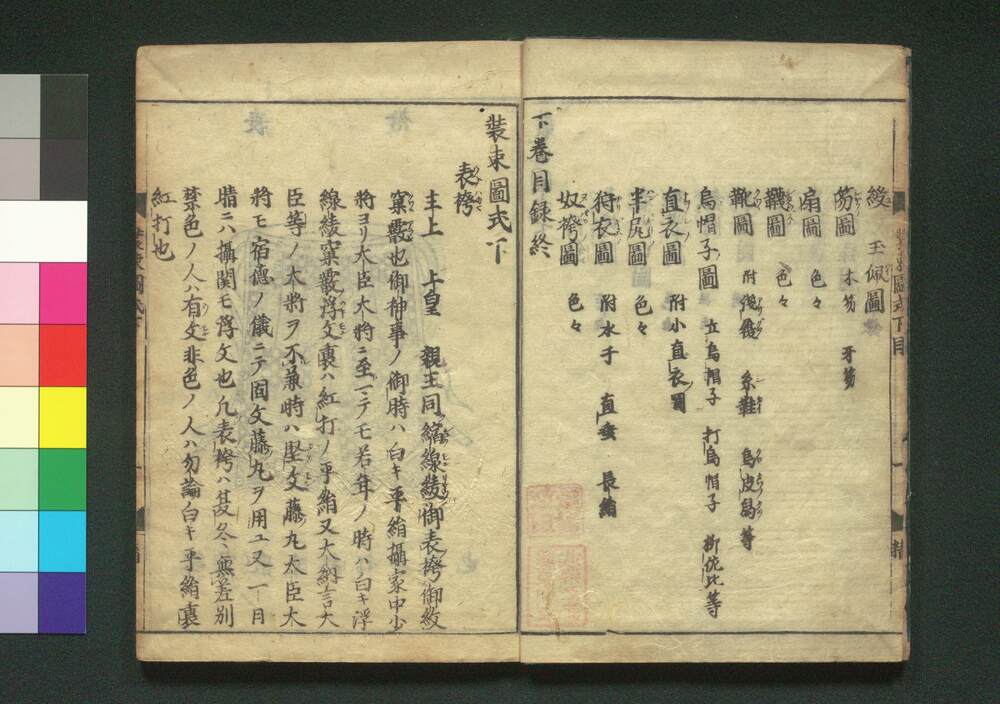 綬 玉佩圖
笏圖 木笏 牙笏
扇圖 色々
襪圖 色々
靴圖 附 糸鞋 烏皮舄等
烏帽子圖 立烏帽子 打烏帽子 柳佐比等
直衣圖 附小直衣圖
半尻圖 色々
狩衣圖 附水干 直垂 長絹
奴袴圖 色々
下卷目録終
装束圖式下
表袴
主上 上皇 親王同縮線綾御表袴御紋
窠霰也御神事ノ御時ハ白キ平絹攝家中少
将ヨリ大臣大将ニ至マテモ若年ノ時ハ白キ浮
線綾窠霰浮文裏ハ紅打ノ平絹又大納言大
臣等ノ大将ヲ不兼時ハ堅文藤丸大臣大
将モ宿徳ノ儀ニテ固文藤丸ヲ用ユ又一日
晴ニハ攝関モ浮文也凡表袴ハ夏冬無差別
禁色ノ人ハ有文非色ノ人ハ勿論白キ平絹裏
紅打也